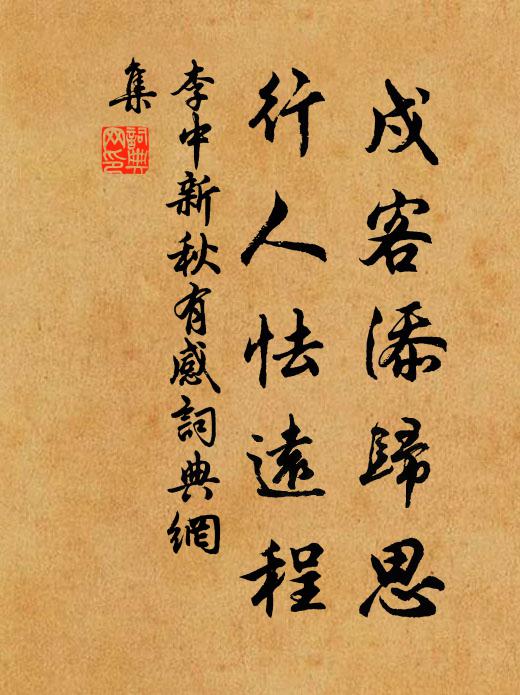 戍客添歸思
行人怯遠程
李中新秋有感詞典網
集
詞典
网印